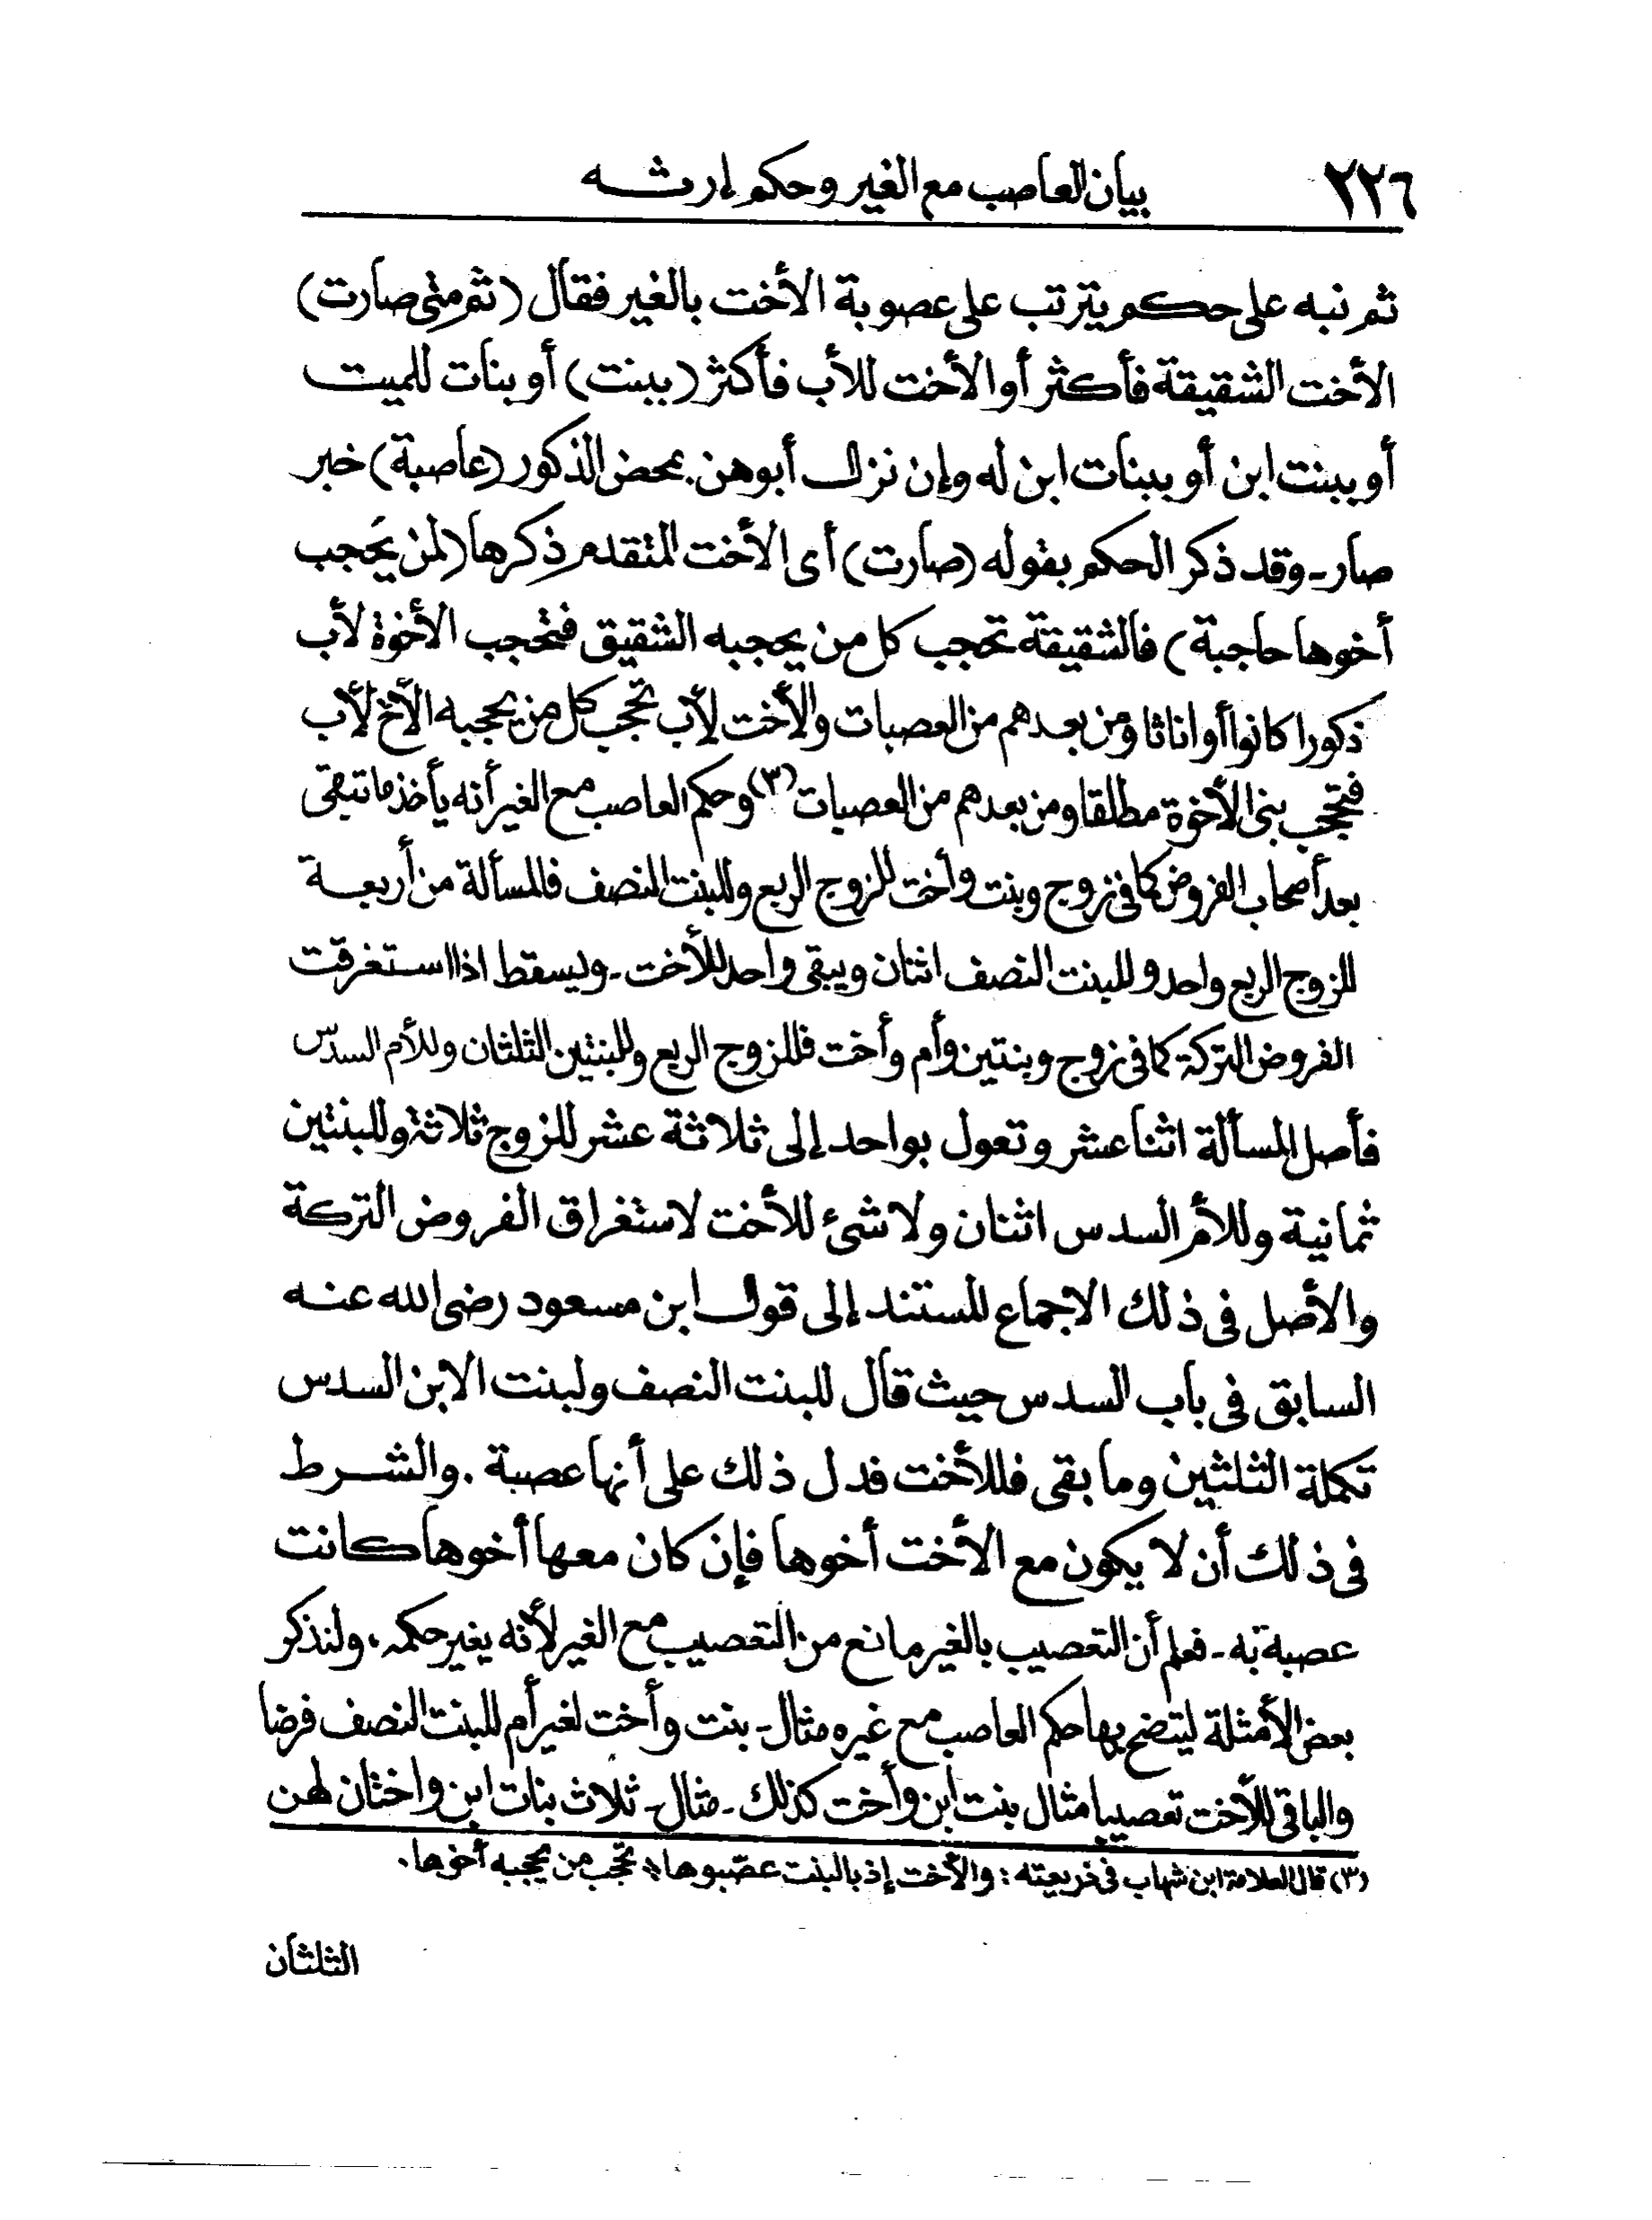 ٢٢٦ بيان العاصب مع الغير وحكم إرثه
ثم نبه على حكم يترتب على عصوبة الأخت بالغير فقال (ثم متى صارت)
الأخت الشقيقة فأكثر أو الأخت للأب فأكثر (ببنت) أو بنات للميت
أو ببنت ابن أو ببنات ابن له وإن نزل أبوهن بمحض الذكور (عاصبة) خبر
صار - وقد ذكر الحكم بقوله (صارت) أى الأخت المتقدم ذكرها (لمن يَحجب
أخوها حاجبة) فالشقيقة تحجب كل من يحجبه الشقيق فتحجب الأخوة لأب
ذكورا كانوا أو اناثا ومن بعدهم من العصبات والأخت لأب تحجب كل من يحجبه الأخ لأب
فتحجب بنى الأخوة مطلقا ومن بعدهم من العصبات (٣) وحكم العاصب مع الغير أنه يأخذ ما تبقى
بعد أصحاب الفروض كما فى زوج وبنت وأخت للزوج الربع وللبنت النصف فالمسألة من أربعة
للزوج الربع واحد وللبنت النصف اثنان ويبقى واحد للأخت - ويسقط اذا استغرقت
الفروض التركة كما فى زوج وبنتين وأم وأخت فللزوج الربع وللبنتين الثلثان وللأم السدس
فأصل المسألة اثنا عشر وتعول بواحد إلى ثلاثة عشر للزوج ثلاثة وللبنتين
ثمانية وللأم السدس اثنان ولا شئ للأخت لاستغراق الفروض التركة
والأصل فى ذلك الاجماع المستند إلى قول ابن مسعود رضى الله عنه
السابق فى باب السدس حيث قال للبنت النصف ولبنت الابن السدس
تكملة الثلثين وما بقى فللأخت فدل ذلك على أنها عصبة . والشرط
فى ذلك أن لا يكون مع الأخت أخوها فإن كان معها أخوها كانت
عصبة به - فعلم أن التعصيب بالغير مانع من التعصيب مع الغير لأنه يغير حكمه، ولنذكر
بعض الأمثلة ليتضح بها حكم العاصب مع غيره مثال - بنت وأخت لغير أم للبنت النصف فرضا
والباقى للأخت تعصيبا مثال بنت ابن وأخت كذلك - مثال - ثلاث بنات ابن واختان لهن
(٣) قال العلامة ابن شهاب فى ذريعته : والأخت إذ بالبنت عصّبوها * تحجب من يحجبه أخوها .
الثلثان